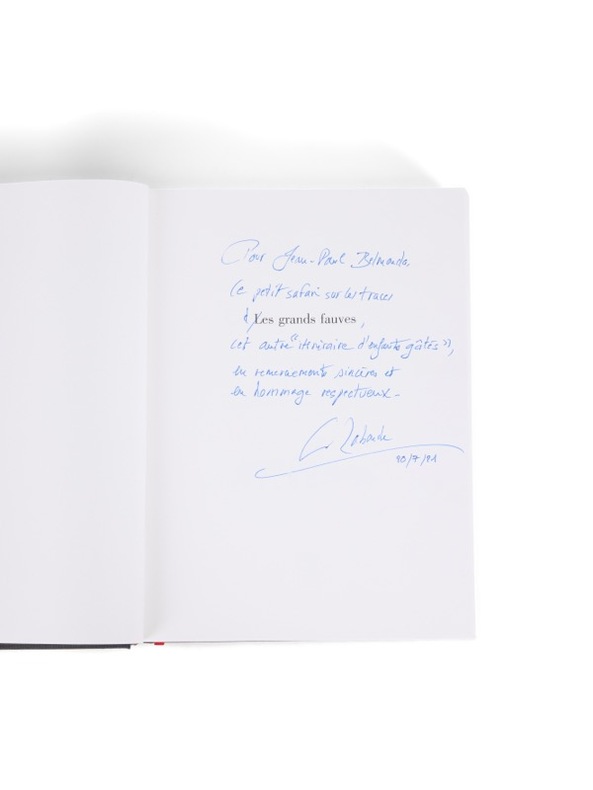 Pour Jean-Paul Belmondo
ce petit safari sur les traces
d'Les grands fauves,
cet autre "itinéraire d'enfants gâtés",
en remerciements sincères et
en hommage respectueux -
20/7/21